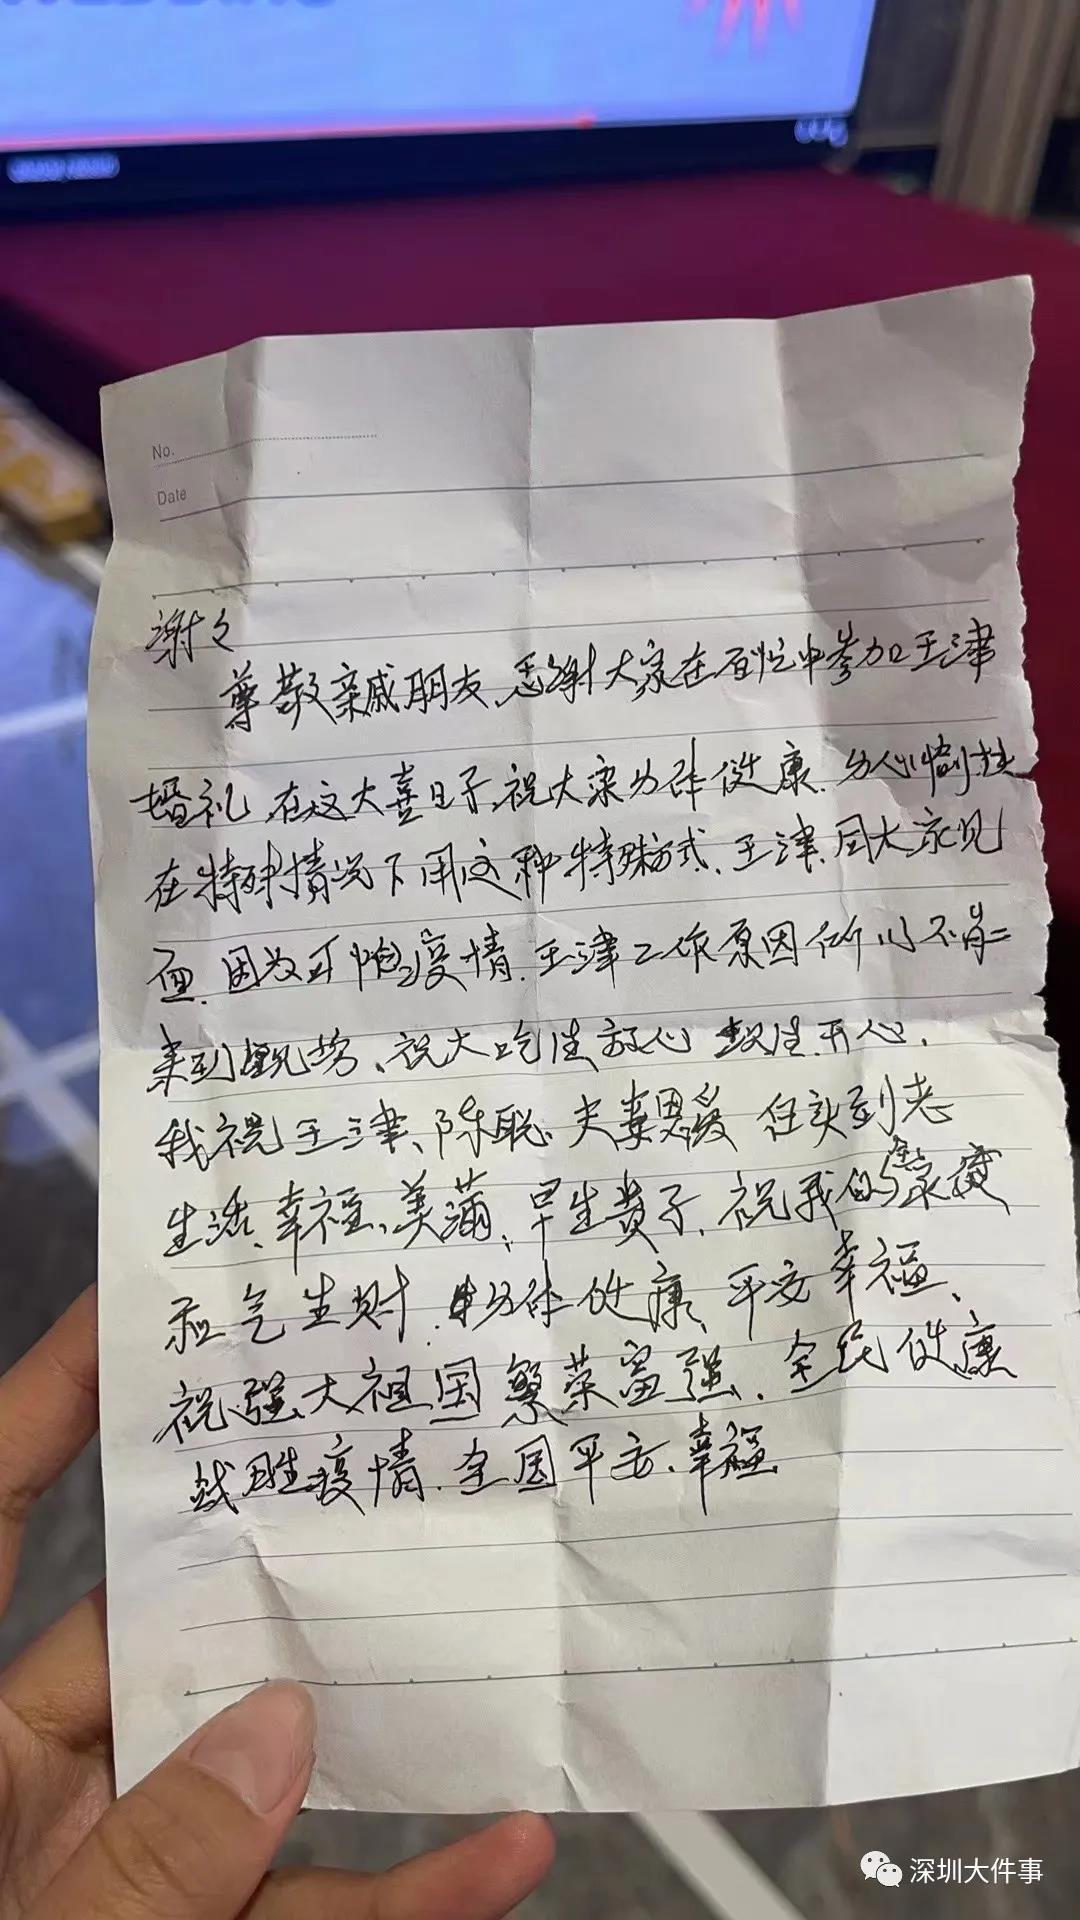 No.
Date
谢々
尊敬亲戚朋友,感谢大家在百忙中参加王津
婚礼,在这大喜日子,祝大家身体健康.身心愉快
在特殊情况下用这种特殊方式.王津.同大家见
面.因为可怕疫情.王津工作原因所以不能
来到现场、祝大吃住放心 玩住开心.
我祝王津、陈聪.夫妻恩爱 白头到老
生活、幸福、美满、早生贵子.祝我的家庭
和气生财.身体健康、平安幸福、
祝强大祖国繁荣富强、全民健康
战胜疫情.全国平安.幸福
深圳大件事